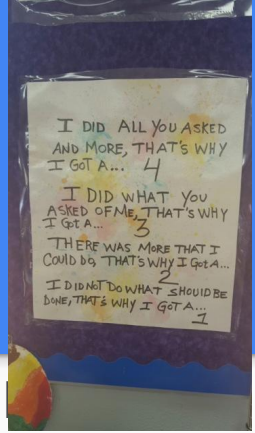 I DID ALL YOU ASKED
AND MORE, THAT'S WHY
I GOT A... 4
I DID WHAT YOU
ASKED OF ME, THAT'S WHY
I GOT A... 3
THERE WAS MORE THAT I
COULD DO, THAT'S WHY I GOT A...
2
I DID NOT DO WHAT SHOULD BE
DONE, THAT'S WHY I GOT A...
1